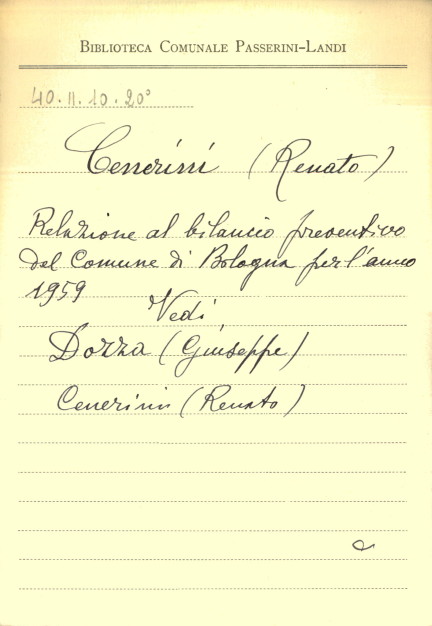 BIBLIOTECA COMUNALE PASSERINI-LANDI
40.II.10.20°
Cenerini (Renato)
Relazione al bilancio preventivo
del Comune di Bologna per l'anno
1959
Vedi
Dozza (Giuseppe)
Cenerini (Renato)